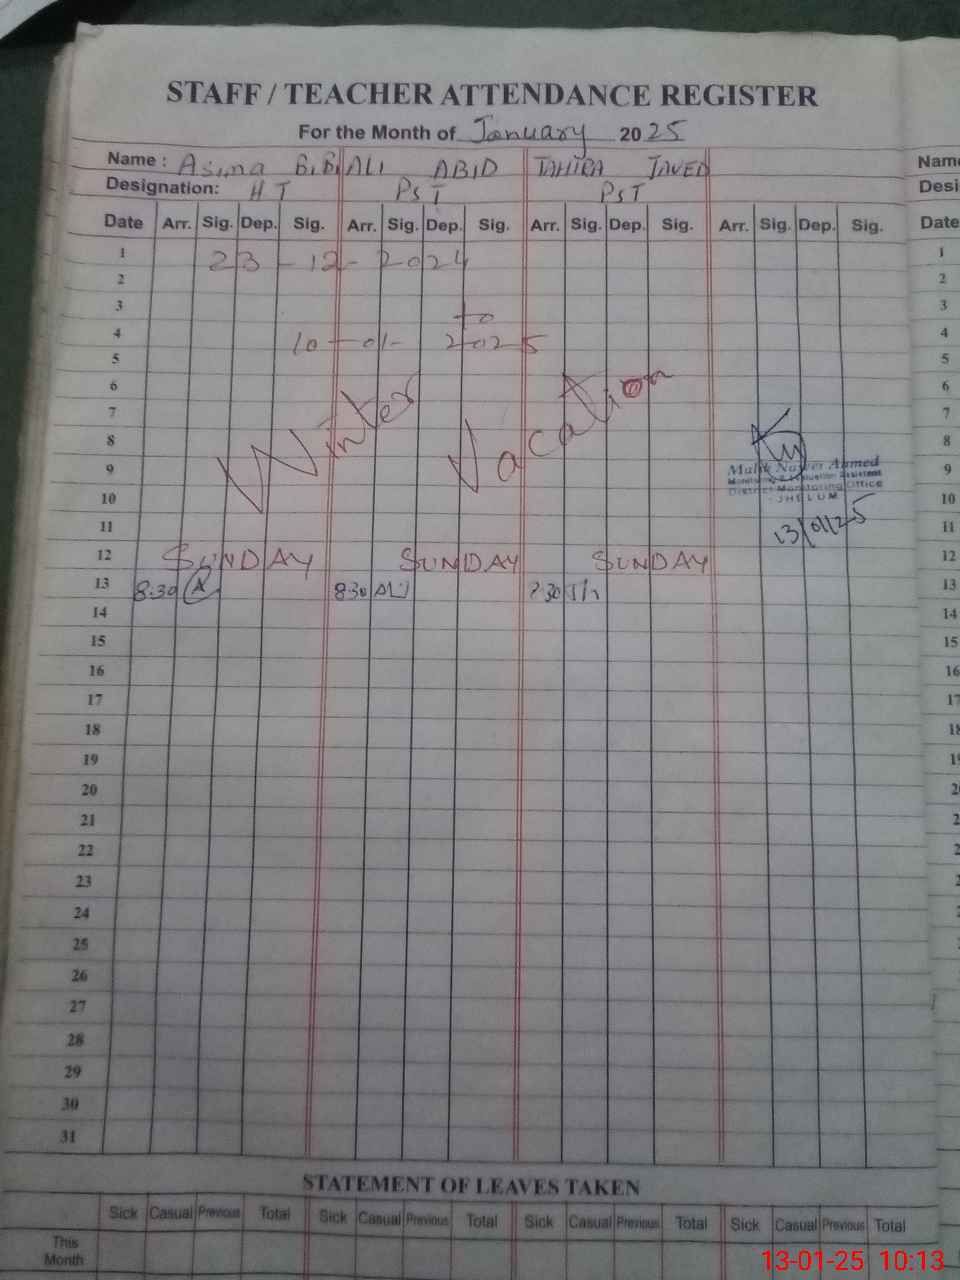 STAFF / TEACHER ATTENDANCE REGISTER
For the Month of January 2025
Name : Asima BiBi ALI ABID TAHIRA JAVED Name
Designation: HT PST PST Desi
Date Arr. Sig. Dep. Sig. Arr. Sig. Dep. Sig. Arr. Sig. Dep. Sig. Arr. Sig. Dep. Sig. Date
1 23-12-2024 1
2 2
3 to 3
4 10-01-2025 4
5 5
6 6
7 Winter Vacation 7
8 8
9 Malik Ahmed 9
Monitoring & Evaluation Assistant
District Monitoring Office
10 JHELUM 10
11 13/01/25 11
12 SUNDAY SUNDAY SUNDAY 12
13 8:30 A 8:30 ALI 30 13
14 14
15 15
16 16
17 17
18 18
19 19
20 20
21 2
22 2
23 2
24 2
25 2
26 2
27
28
29
30
31
STATEMENT OF LEAVES TAKEN
Sick Casual Previous Total Sick Casual Previous Total Sick Casual Previous Total Sick Casual Previous Total
This
Month
13-01-25 10:13